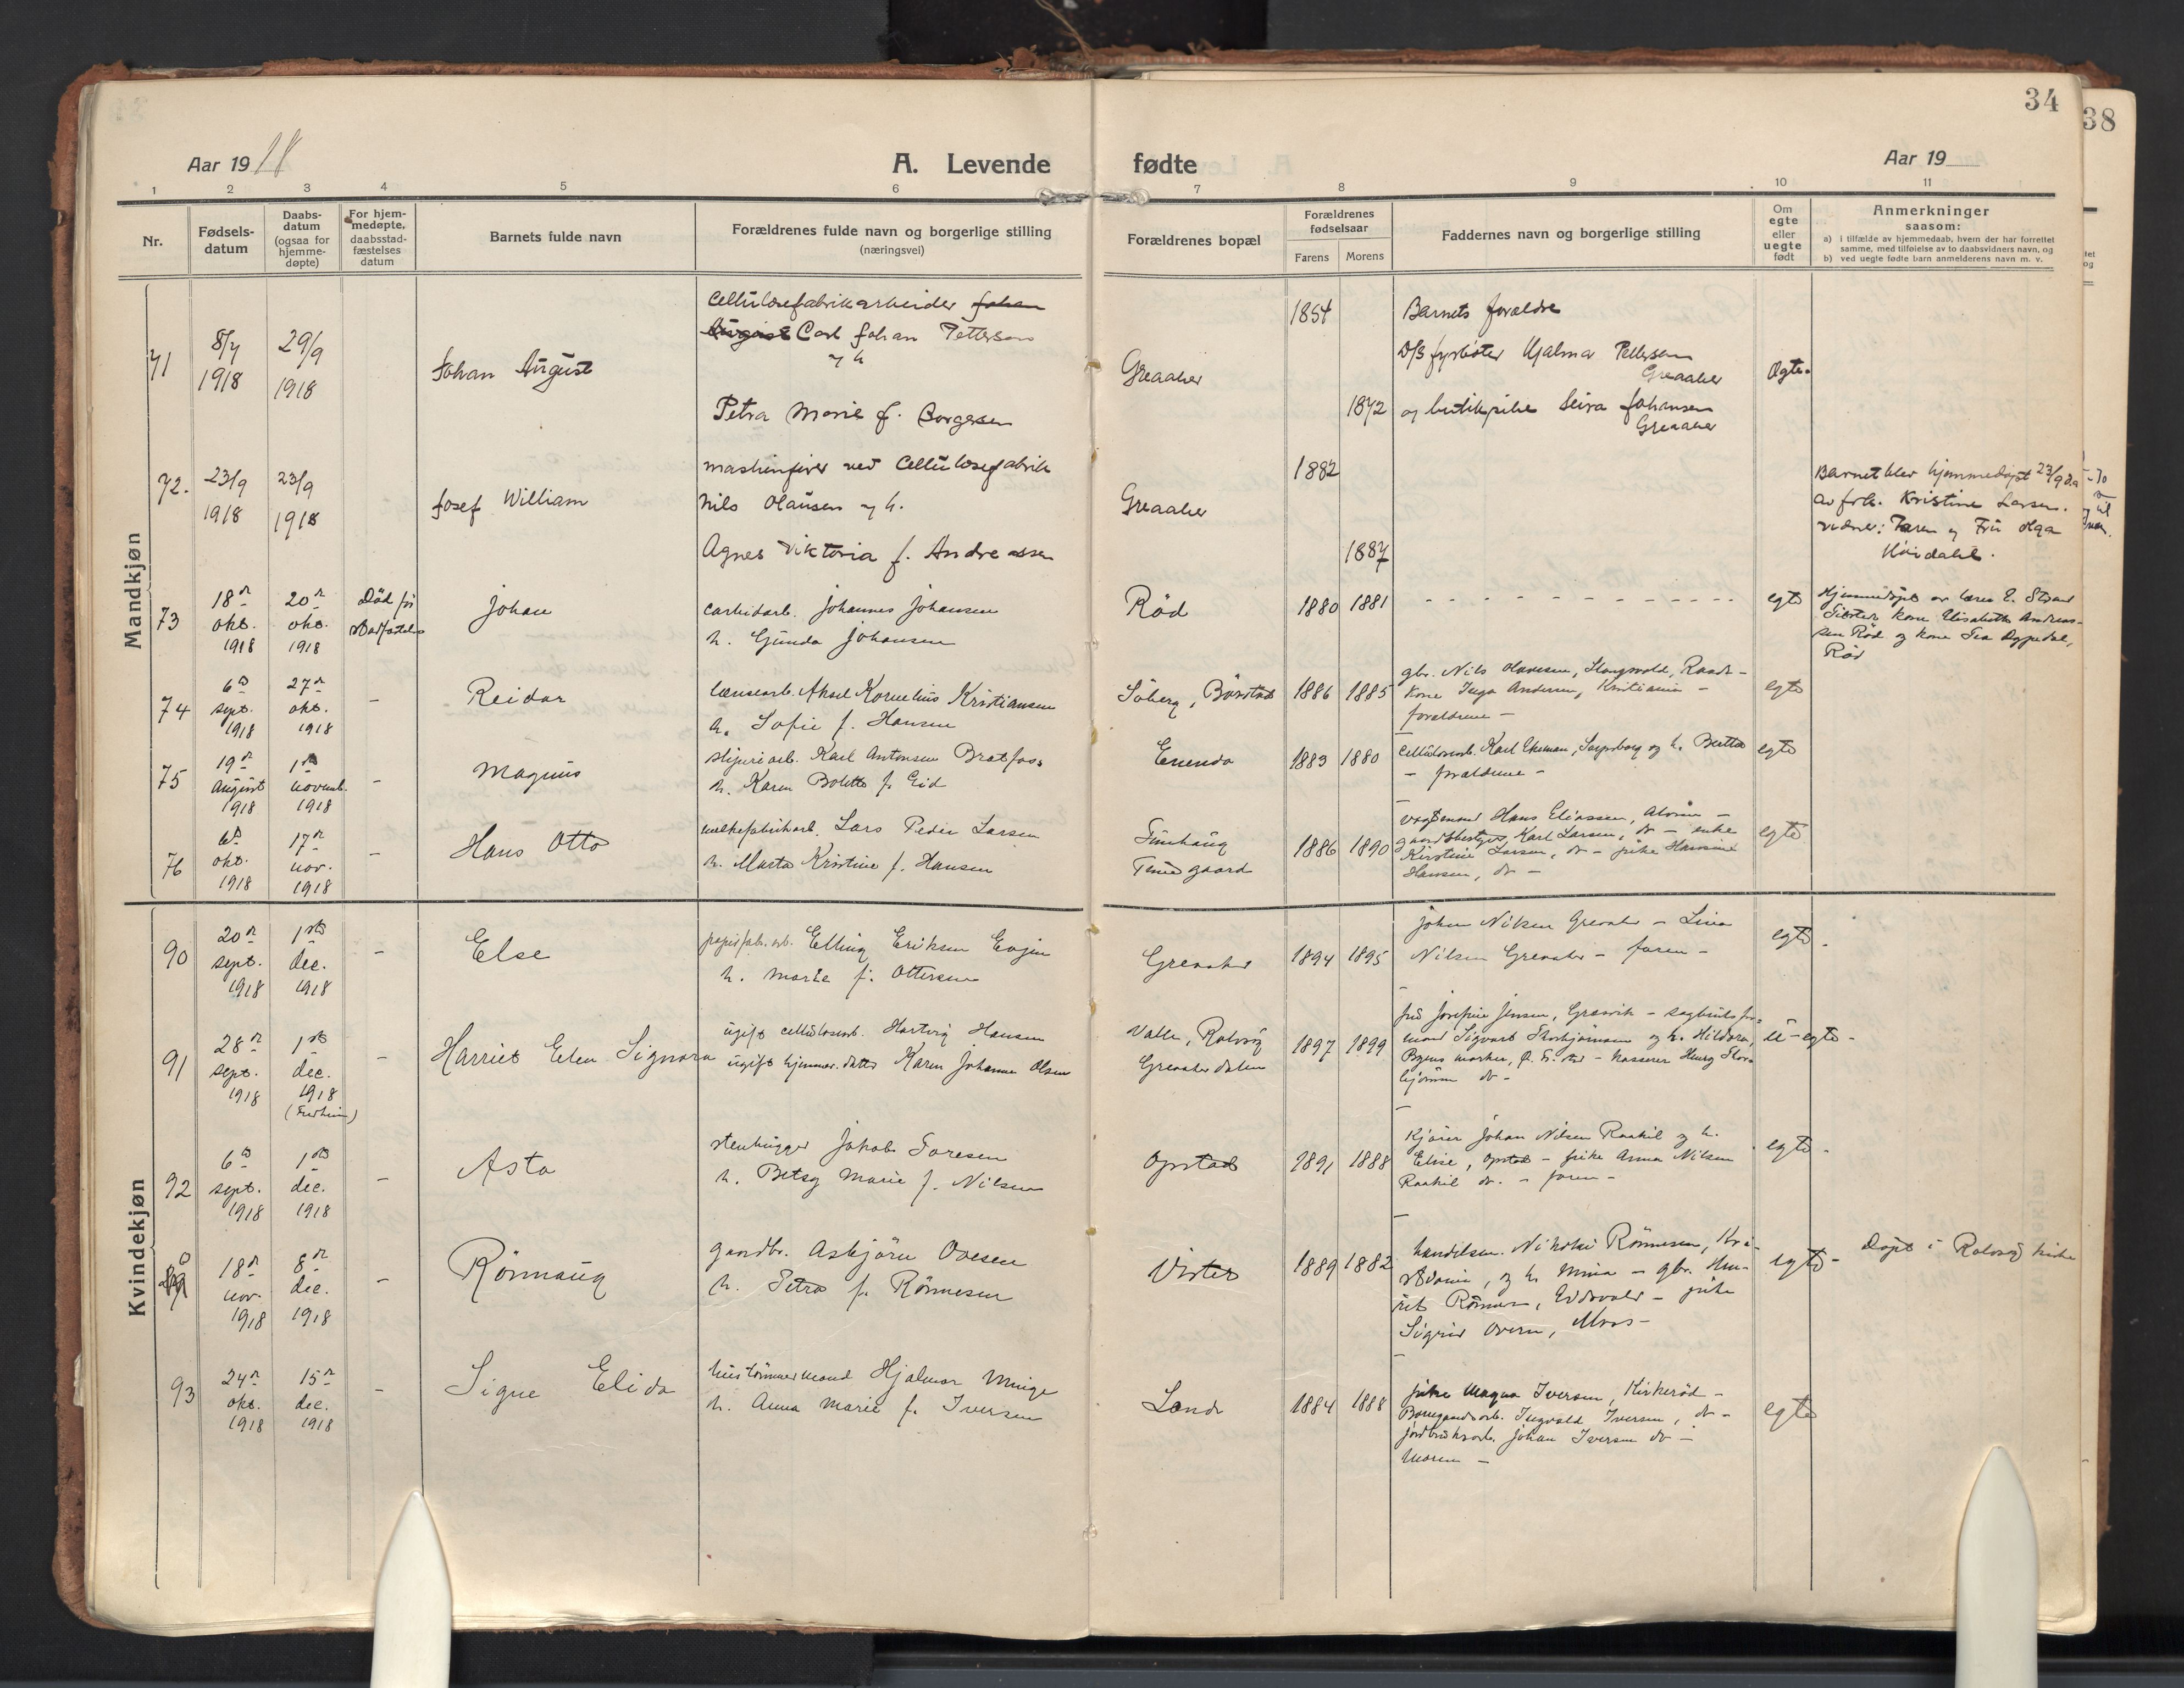 34
38
Aar 1918
A. Levende fødte
Aar 19
1 2 3 4 5 6 7 8 9 10 11
Nr.
Fødsels-
datum
Daabs-
datum
(ogsaa for
hjemme-
døpte)
For hjem-
medøpte,
daabsstad-
fæstelses
datum
Barnets fulde navn
Forældrenes fulde navn og borgerlige stilling
(næringsvei)
Forældrenes bopæl
Forældrenes
fødselsaar
Farens Morens
Faddernes navn og borgerlige stilling
Om
egte
eller
uegte
født
Anmerkninger
saasom:
a) i tilfælde av hjemmedaab, hvem der har forrettet
samme, med tilføielse av to daabsvidners navn, og
b) ved uegte fødte barn anmelderens navn m. v.
Mandkjøn
71
8/7
1918
29/9
1918
Johan August
Cellulosefabrikarbeider Johan
August Carl Johan Pettersen
og h
Petra Marie f. Borgersen
Greaaker
1854
1872
Barnets forældre
D/S fyrbøter Hjalmar Pettersen
Greaaker
og butikpike Johansen
Greaaker
Ægte.
72.
23/9
1918
23/9
1918
Josef William
maskinfører ved Cellulosefabrik
Nils Olausen og h.
Agnes Viktoria f. Andreassen
Greaaker
1882
1887
Barnet blev hjemmedøpt 23/9 d.a
av frk. Kristine Larsen.
vidner: Faren og Fru Olga
Høidahl.
73
18de
okt.
1918
20de
okt.
1918
Død før
stadfæstelse
Johan
carbidarb. Johannes Johansen
h. Gunda Johansen
Rød
1880 1881
egte
Hjemmedøpt av lærer E. Strand
kone Elisabeth Andreas-
sen Rød og kone Rød
74
6te
sept.
1918
27de
okt.
1918
-
Reidar
lænsearb. Aksel Kornelius Kristiansen
h. Sofie f. Hansen
Solberg,
1886 1885
gbr. Nils Raade -
kone Inga Andersen, Kristiania -
forældrene -
egte
75
19de
august
1918
1ste
novemb.
1918
-
Magnus
sliperiarb. Karl Antonsen Bratfos
h. Karen Bolette f. Eid
Enenda
1883 1880
cellulosearb. Karl Ekeman, Sarpsborg og h. Berta
- forældrene -
egte
76
6te
okt.
1918
17de
nov.
1918
-
Hans Otto
melkefabrikarb. Lars Peder Larsen
h. Marta Kristine f. Hansen
Tunehaug
Tunegaard
1886 1890
vogtmand Hans Eliassen, -
gaardsbestyrer Karl Larsen, do - enke
Kirstine Larsen, do - pike Hansine
Hansen, do -
egte
Kvindekjøn
90
20de
sept.
1918
1ste
dec.
1918
-
Else
papirfab.arb. Elling Eriksen Evjen
h. Marie f. Ottersen
Greaaker
1894 1895
Johan Nilsen Greaaker - Lina
Nilsen Greaaker - faren -
egte -
91
28de
sept.
1918
1ste
dec.
1918
-
Harriet Elen Signora
ugift cellulosearb. Hartvig Hansen
ugift hjemmev. datter Karen Johanne Olsen
Valle, Rolvsøy
Greaakerdalen
1897 1899
frk Josefine Jensen, Gresvik - sagbruksfor-
mand Sigvart Skorbjørnsen og h. Hildora,
kasserer Henry
do -
u-egte -
92
6te
sept.
1918
1ste
dec.
1918
-
Asta
stenhugger Jakob Toresen
h. Betsy Marie f. Nilsen
Opstad
1891 1888
Kjører Johan Nilsen Raakil og h.
Elise, Opstad - pike Anna Nilsen
Raakil do. - faren -
egte -
18de
nov.
1918
8de
dec.
1918
-
Rönnaug
gaardbr. Asbjörn Ovesen
h. Petra f. Rönnesen
Vister
1889 1882
handelsm. Nikolai Rönnesen, Kri-
stiania, og h. Mina - gbr.
Eidsvold - pike
Sigrid Ovesen, Moss -
egte -
Døpt i Rolvsøy kirke
93
24de
okt.
1918
15de
dec.
1918
-
Signe Elida
hustømmermand Hjalmar Minge
h. Anna Marie f. Iversen
Lande
1884 1888
pike Magna Iversen, Kirkerød -
Borregaardsarb. Ingvald Iversen, do -
jordbruksarb. Johan Iversen do -
moren -
egte